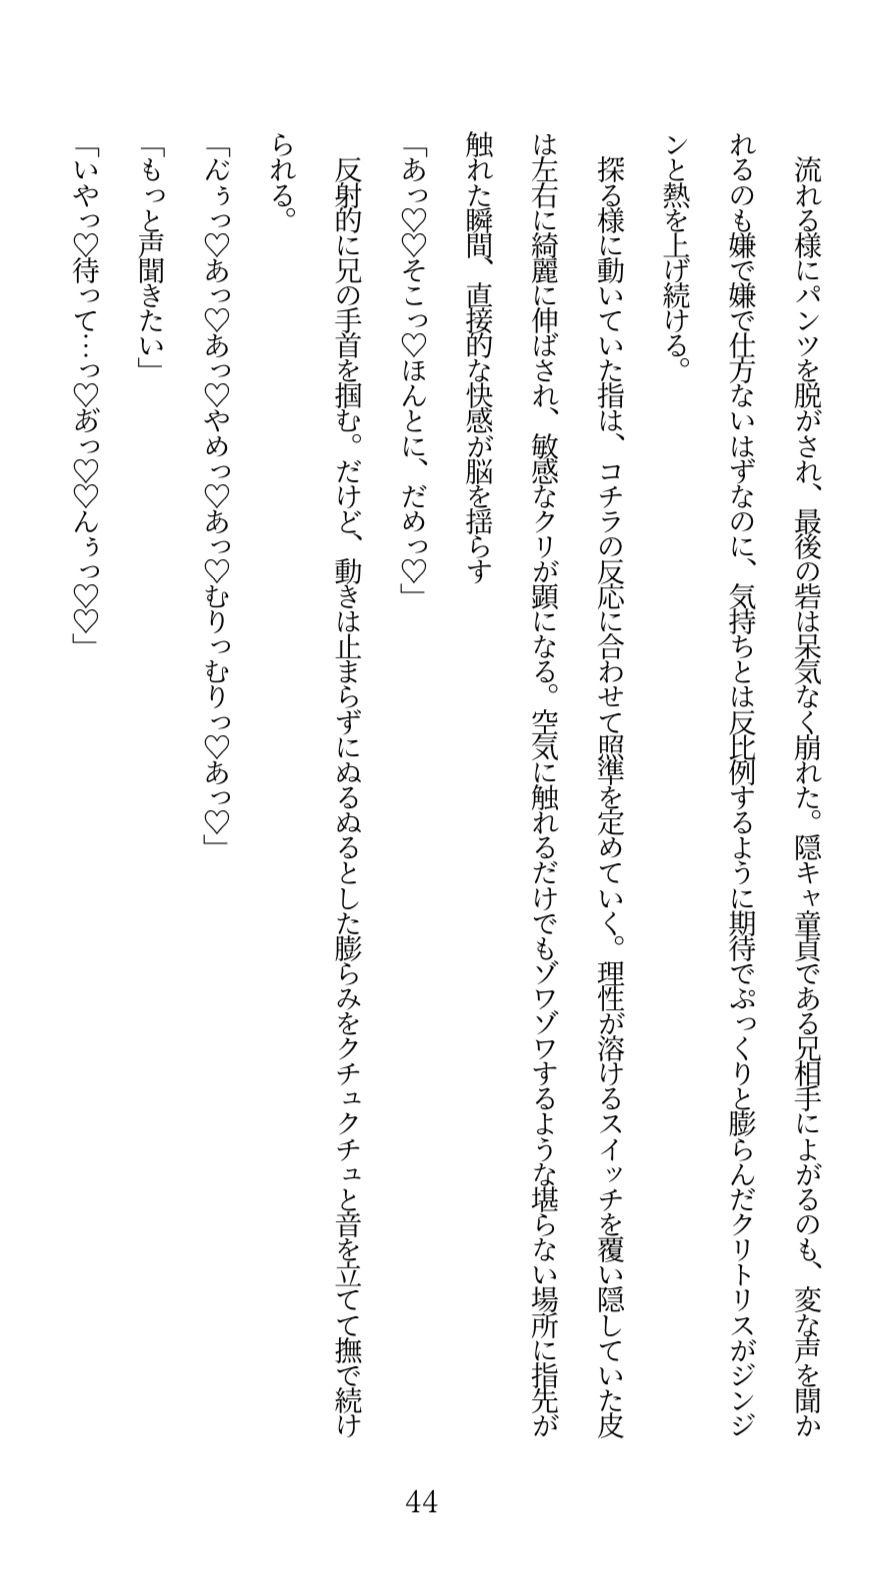 流れる様にパンツを脱がされ、最後の砦は呆気なく崩れた。隠キャ童貞である兄相手によがるのも、変な声を聞か
れるのも嫌で嫌で仕方ないはずなのに、気持ちとは反比例するように期待でぷっくりと膨らんだクリトリスがジンジ
ンと熱を上げ続ける。
探る様に動いていた指は、コチラの反応に合わせて照準を定めていく。理性が溶けるスイッチを覆い隠していた皮
は左右に綺麗に伸ばされ、敏感なクリが顕になる。空気に触れるだけでもゾワゾワするような堪らない場所に指先が
触れた瞬間、直接的な快感が脳を揺らす
「あっ♡♡そこっ♡ほんとに、だめっ♡」
反射的に兄の手首を掴む。だけど、動きは止まらずにぬるぬるとした膨らみをクチュクチュと音を立てて撫で続け
られる。
「ん゙ぅっ♡あっ♡あっ♡やめっ♡あっ♡むりっむりっ♡あっ♡」
「もっと声聞きたい」
「いやっ♡待って…っ♡あ゙っ♡♡んぅっ♡♡」
44